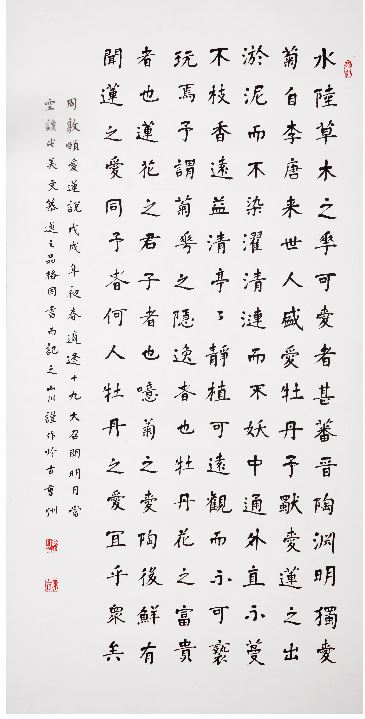 水陸草木之華可愛者甚蕃晉陶淵明獨愛
菊自李唐来世人盛愛牡丹予愛蓮之出
淤泥而不染濯清漣而不妖中通外直不蔓
不枝香遠益清亭〻靜植可遠觀而不可褻
玩焉予謂菊華之隱逸者也牡丹花之富貴
者也蓮花之君子者也噫菊之愛陶後鮮有
聞蓮之愛同予者何人牡丹之愛宜乎衆矣
周敦頤愛蓮說戊戌年春十九大召開明月當
空讀此美文慕蓮之品格因書而記之山川謹作於古州